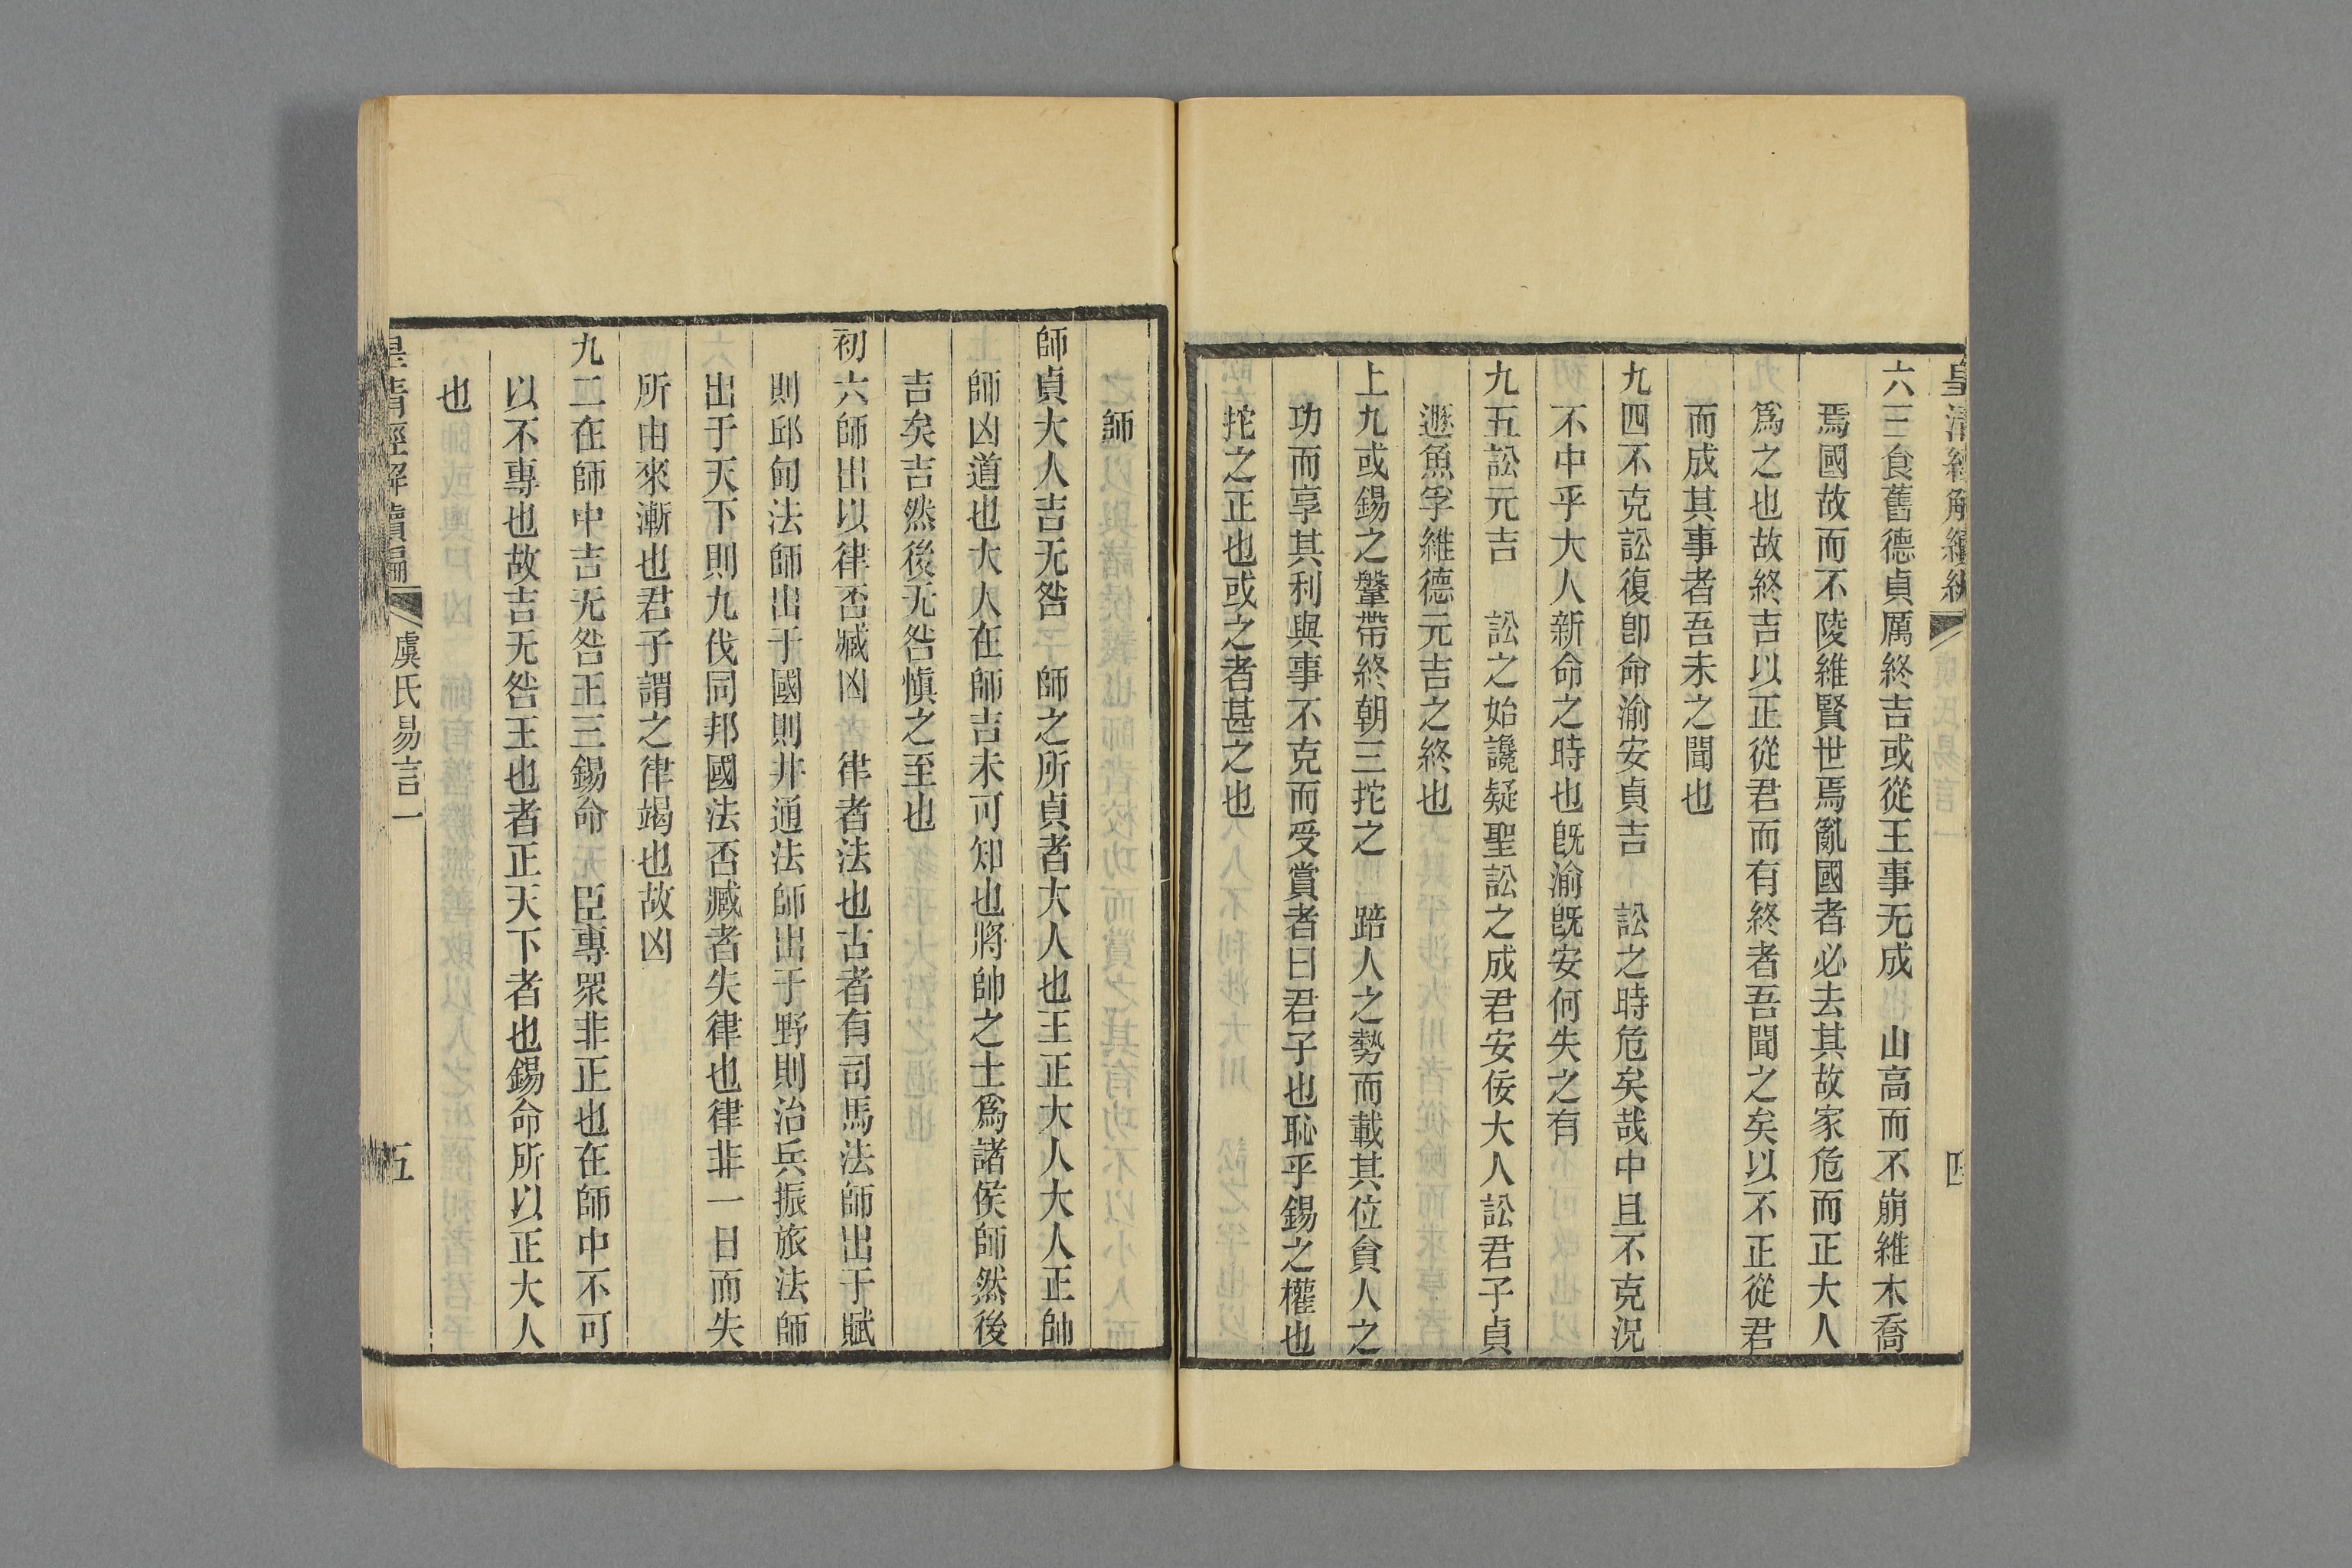 皇清經解續編
四
六三食舊德貞厲終吉或從王事无成　山高而不崩維木喬
焉國故而不陵維賢世焉亂國者必去其故家危而正大人
爲之也故終吉以正從君而有終者吾聞之矣以不正從君
而成其事者吾未之聞也
九四不克訟復卽命渝安貞吉　訟之時危矣哉中且不克況
不中乎大人新命之時也旣渝旣安何失之有
九五訟元吉　訟之始讒疑聖訟之成君安佞大人訟君子貞
遯魚孚維德元吉之終也
上九或錫之鞶帶終朝三拕之　踣人之勢而載其位貟人之
功而享其利與事不克而受賞者曰君子也恥乎錫之權也
拕之正也或之者甚之也
師
師貞大人吉无咎　師之所貞者大人也王正大人大人正帥
師凶道也大人在師吉未可知也將帥之士爲諸侯師然後
吉矣吉然後无咎愼之至也
初六師出以律否臧凶　律者法也古者有司馬法師出于賦
則邱甸法師出于國則井通法師出于野則治兵振旅法師
出于天下則九伐同邦國法否臧者失律也律非一日而失
所由來漸也君子謂之律竭也故凶
九二在師中吉无咎王三錫命　臣專眾非正也在師中不可
以不專也故吉无咎王也者正天下者也錫命所以正大人
也
皇清經解續編
虞氏易言一
五